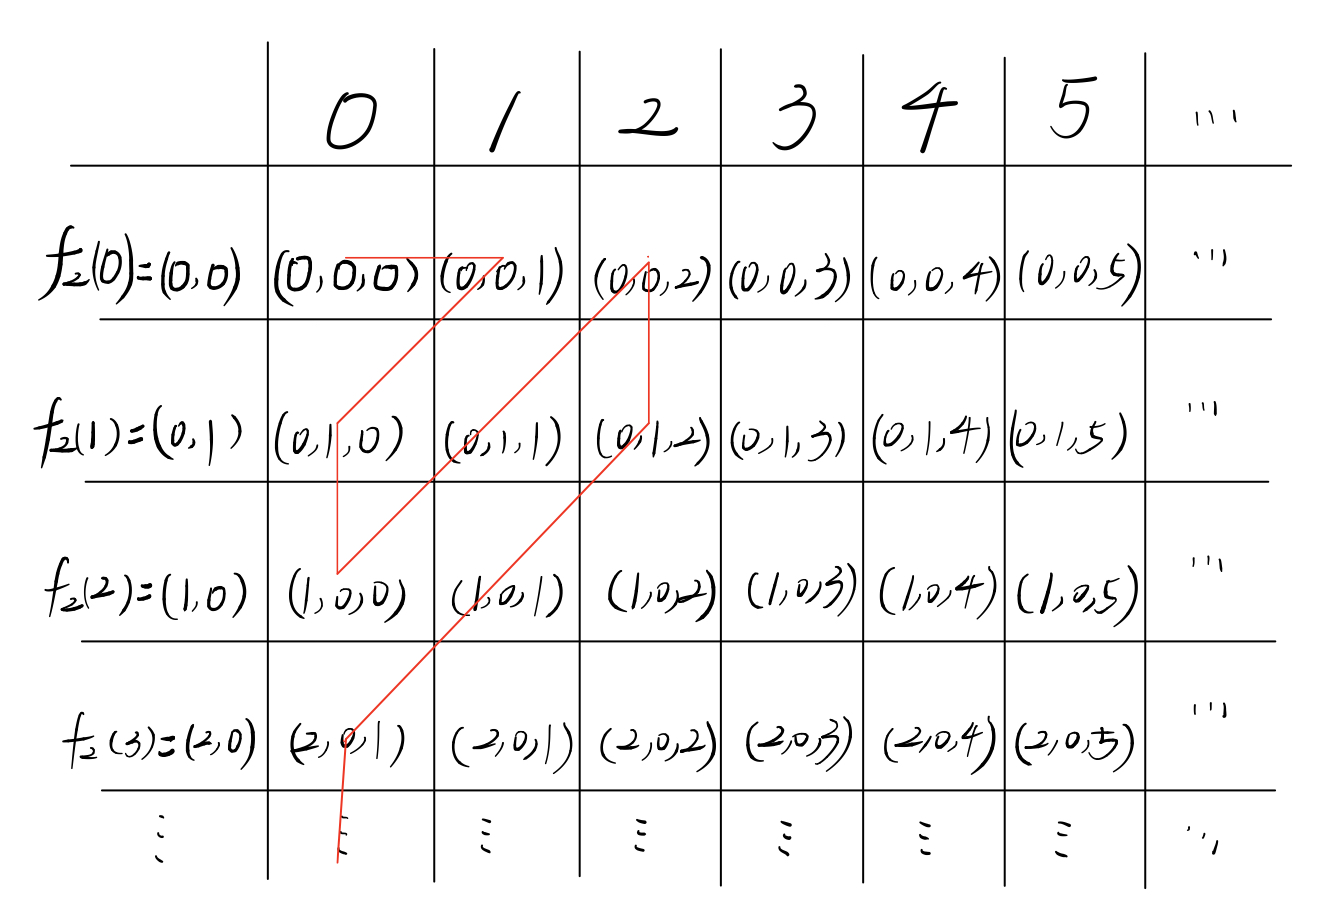 0 1 2 3 4 5 ...
f₂(0)=(0,0) (0,0,0) (0,0,1) (0,0,2) (0,0,3) (0,0,4) (0,0,5) ...
f₂(1)=(0,1) (0,1,0) (0,1,1) (0,1,2) (0,1,3) (0,1,4) (0,1,5) ...
f₂(2)=(1,0) (1,0,0) (1,0,1) (1,0,2) (1,0,3) (1,0,4) (1,0,5) ...
f₂(3)=(2,0) (2,0,1) (2,0,1) (2,0,2) (2,0,3) (2,0,4) (2,0,5) ...
⋮ ⋮ ⋮ ⋮ ⋮ ⋮ ⋮ ⋱